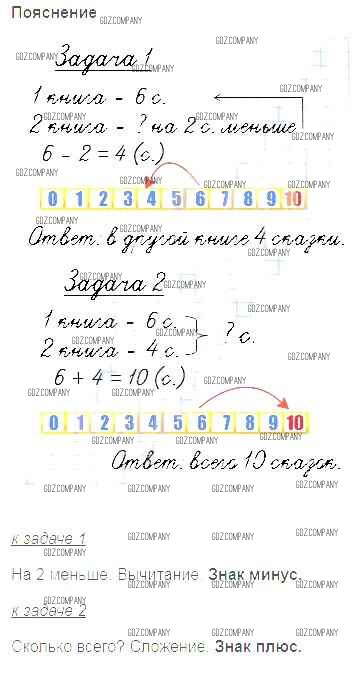 Пояснение
Задача 1
1 книга - 6 с.
2 книга - ? на 2 с. меньше
6 - 2 = 4 (с.)
0 1 2 3 4 5 6 7 8 9 10
Ответ: в другой книге 4 сказки.
Задача 2
1 книга - 6 с.
2 книга - 4 с.
? с.
6 + 4 = 10 (с.)
0 1 2 3 4 5 6 7 8 9 10
Ответ: всего 10 сказок.
к задаче 1
На 2 меньше. Вычитание. Знак минус.
к задаче 2
Сколько всего? Сложение. Знак плюс.
GDZ.COMPANY